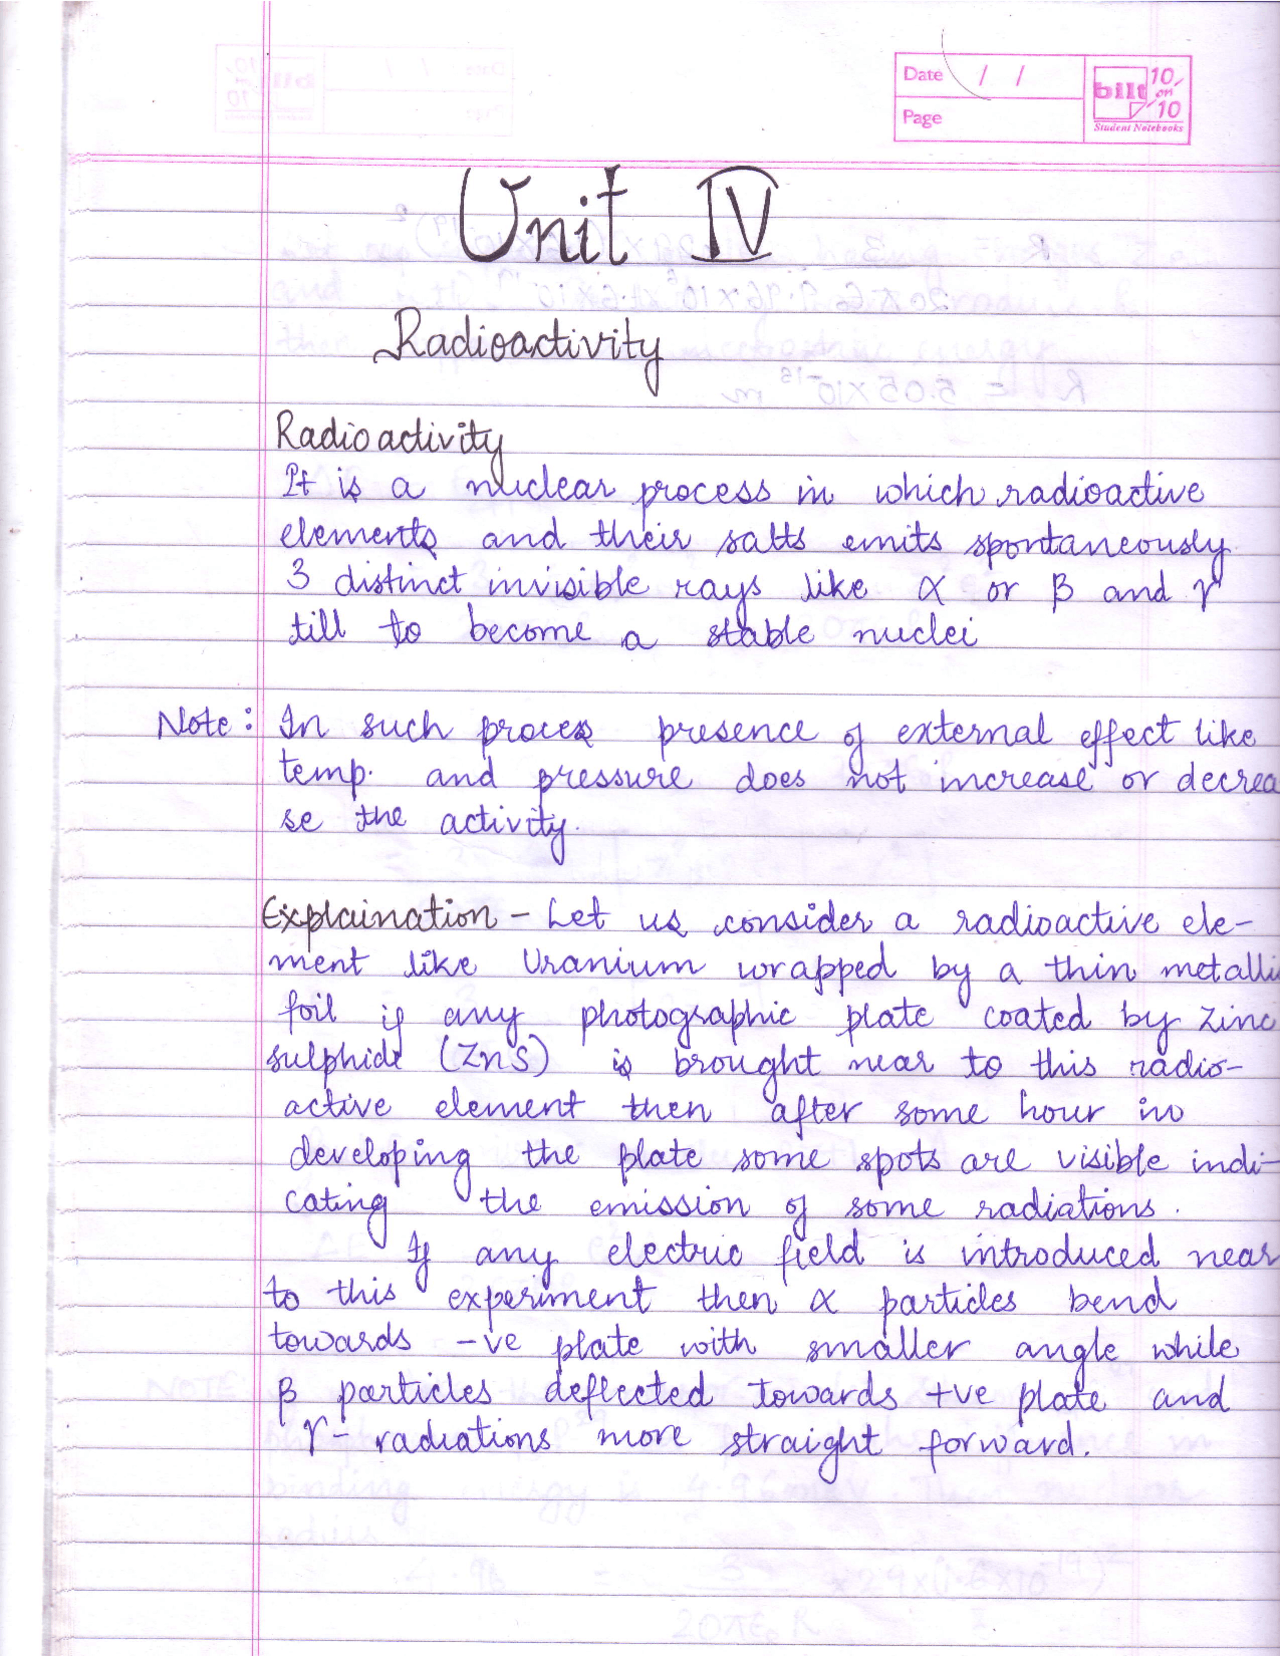 Date / /
Page
bilt 10 on 10
Student Notebooks
Unit IV
Radioactivity
Radioactivity
It is a nuclear process in which radioactive
elements and their salts emits spontaneously
3 distinct invisible rays like α or β and γ
till to become a stable nuclei
Note: In such process presence of external effect like
temp. and pressure does not increase or decrea
se the activity.
Explaination - Let us consider a radioactive ele-
ment like Uranium wrapped by a thin metalli
foil if any photographic plate coated by zinc
sulphide (ZnS) is brought near to this radio-
active element then after some hour in
developing the plate some spots are visible indi-
cating the emission of some radiations.
If any electric field is introduced near
to this experiment then α particles bend
towards -ve plate with smaller angle while
β particles deflected towards +ve plate and
γ- radiations more straight forward.